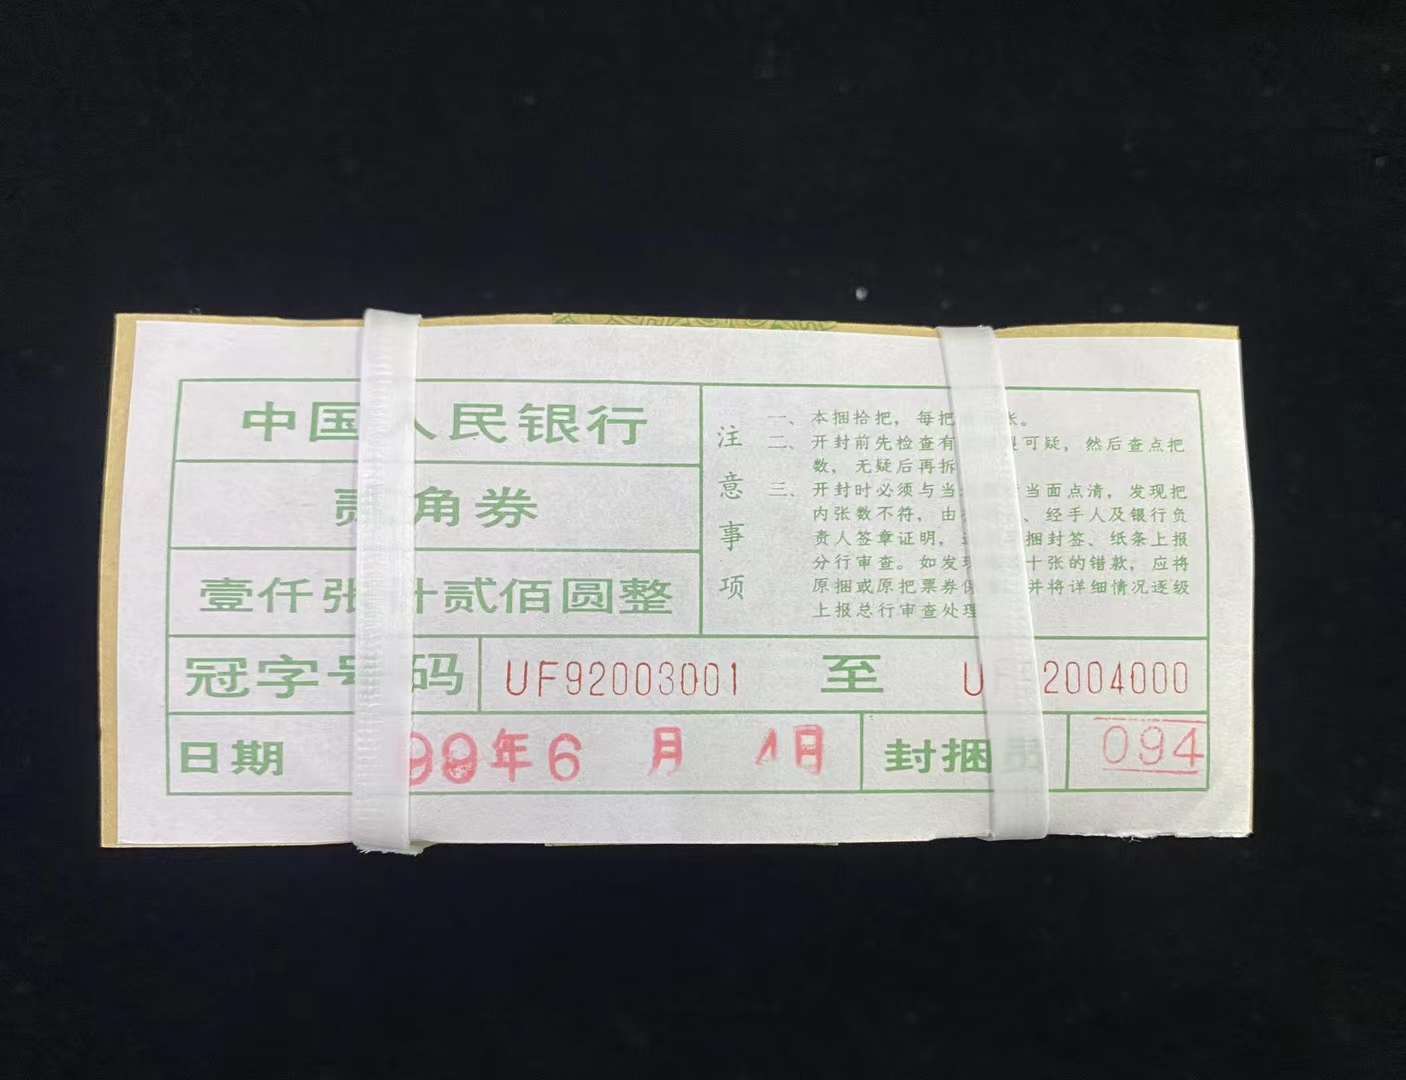 中国人民银行
贰角券
壹仟张计贰佰圆整
注意事项
一、本捆拾把，每把 张。
二、开封前先检查有 可疑，然后查点把
数，无疑后再拆
三、开封时必须与当 当面点清，发现把
内张数不符，由 、经手人及银行负
责人签章证明， 捆封签、纸条上报
分行审查。如发现 十张的错款，应将
原捆或原把票券保 并将详细情况逐级
上报总行审查处理
冠字号码 UF92003001 至 UF92004000
日期 99年6月 日 封捆员 094